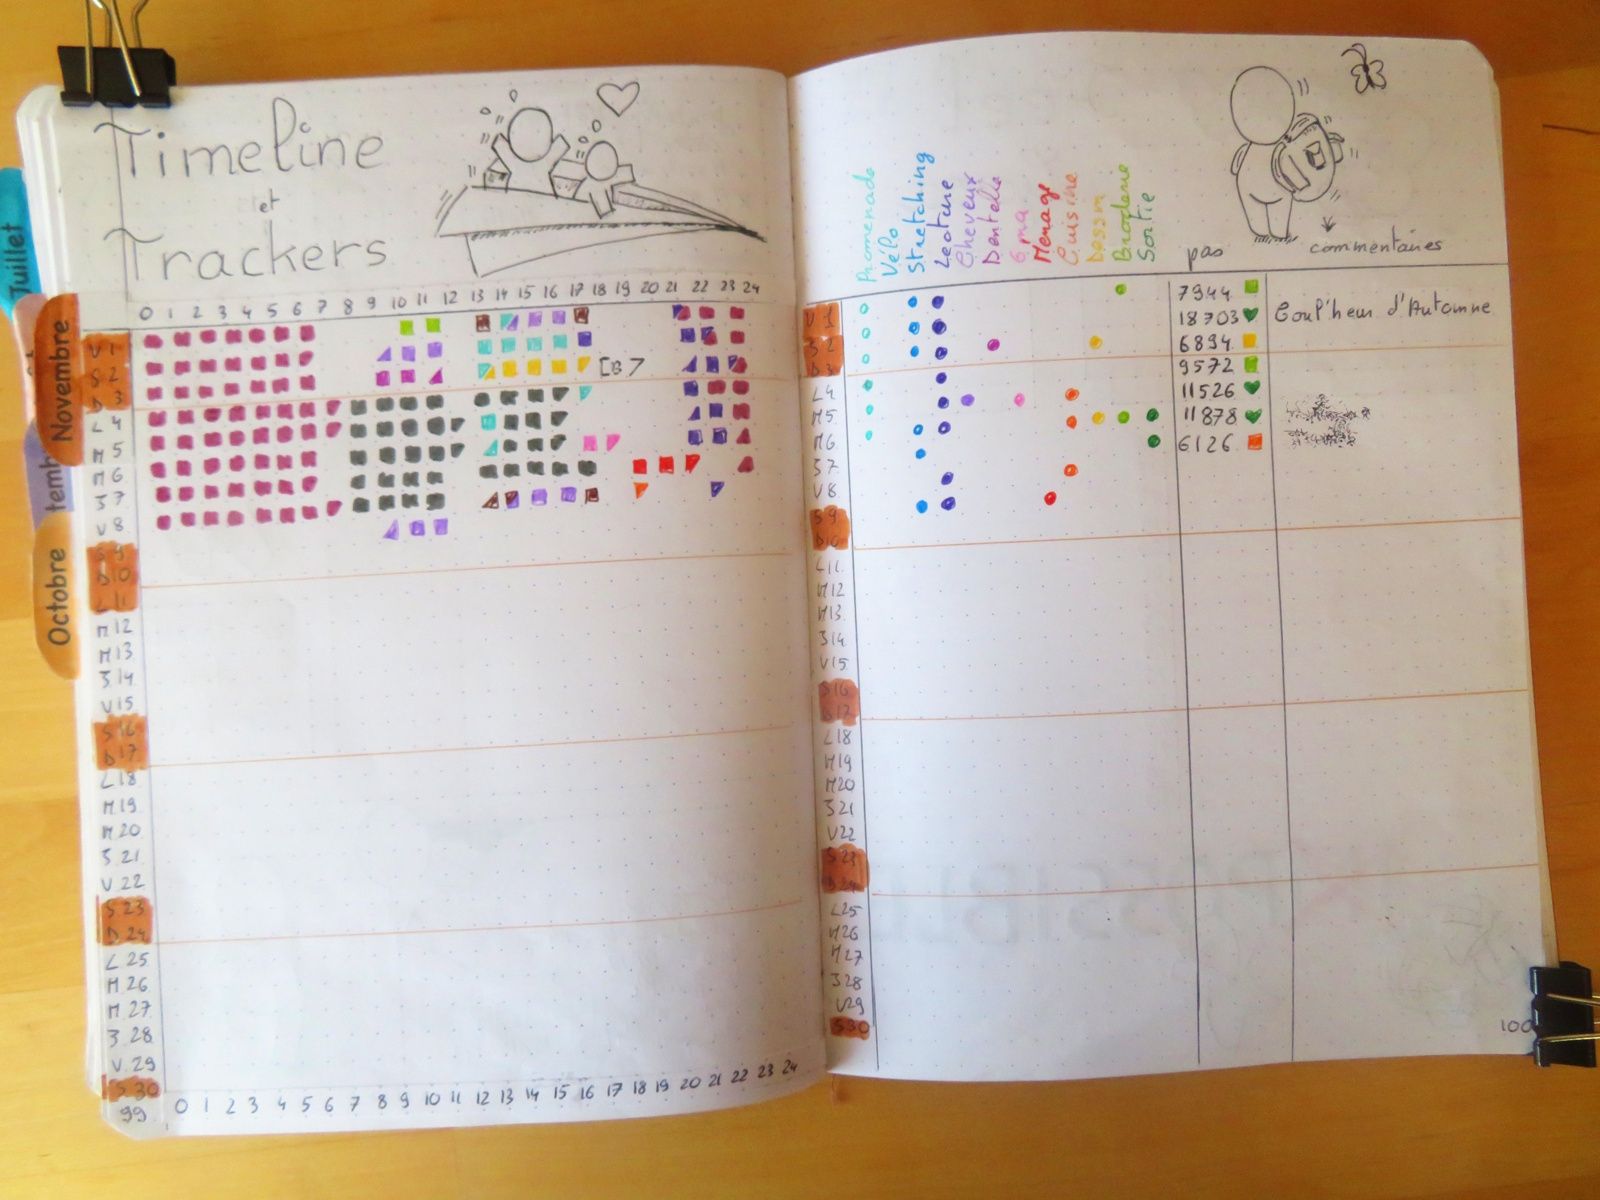 Timeline
et
Trackers
0 1 2 3 4 5 6 7 8 9 10 11 12 13 14 15 16 17 18 19 20 21 22 23 24
V 1
S 2
D 3
L 4
M 5
M 6
J 7
V 8
S 9
D 10
L 11
M 12
M 13
J 14
V 15
S 16
D 17
L 18
M 19
M 20
J 21
V 22
S 23
D 24
L 25
M 26
M 27
J 28
V 29
S 30
99
0 1 2 3 4 5 6 7 8 9 10 11 12 13 14 15 16 17 18 19 20 21 22 23 24
Juillet
Novembre
temb
Octobre
Promenade
Vélo
Stretching
Lecture
Cheveux
Dentelle
Ménage
Cuisine
Dessin
Broderie
Sortie
pas
commentaires
V 1
S 2
D 3
L 4
M 5
M 6
J 7
V 8
S 9
D 10
L 11
M 12
M 13
J 14
V 15
S 16
D 17
L 18
M 19
M 20
J 21
V 22
S 23
D 24
L 25
M 26
M 27
J 28
V 29
S 30
7944
18703
6894
9572
11526
11878
6126
Coup'heur d'Automne
100